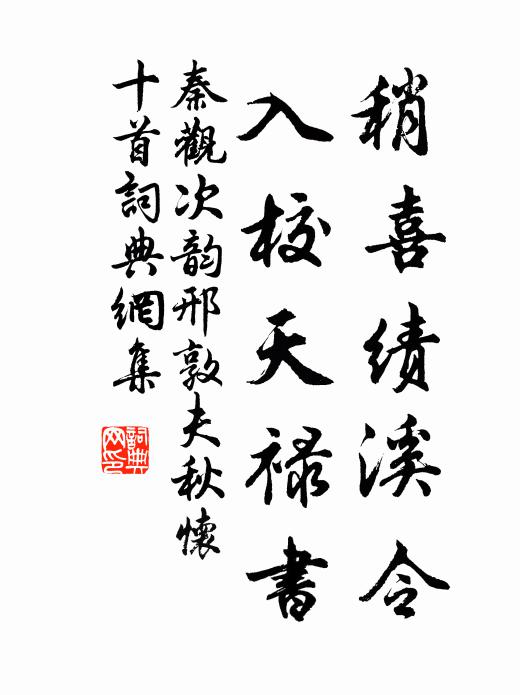 稍喜績溪令
入校天祿書
秦觀次韵邢敦夫秋懷
十首詞典網集
詞典
网印